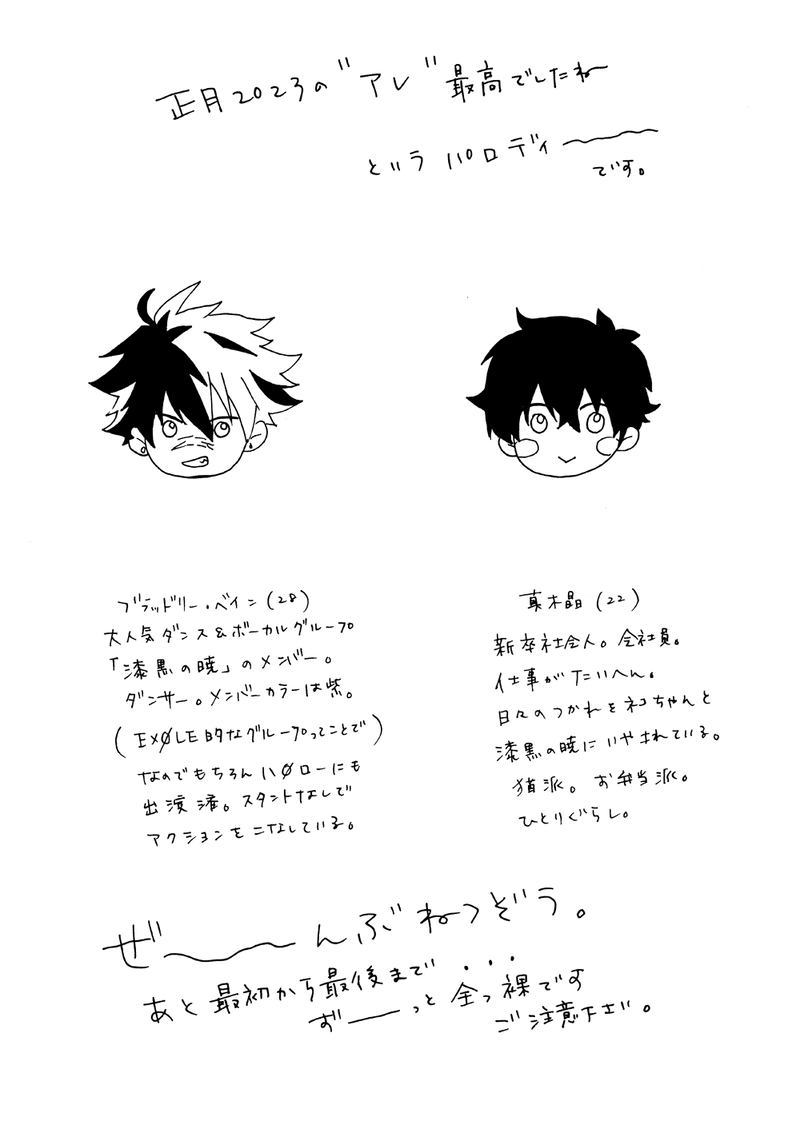 正月2023の"アレ"最高でしたね
というパロディ〜
です。
ブラッドリー・ベイン(28)
大人気ダンス&ボーカルグループ
「漆黒の暁」のメンバー。
ダンサー。メンバーカラーは紫。
(EXØLE的なグループってことで)
なのでもちろんハØローにも
出演済。スタントなしで
アクションをこなしている。
真木晶(22)
新卒社会人。会社員。
仕事がたいへん。
日々のつかれをネコちゃんと
漆黒の暁にいやされている。
猫派。お弁当派。
ひとりぐらし。
ぜ〜んぶねつぞう。
あと最初から最後まで...
ずーっと全っ裸です
ご注意下さい。